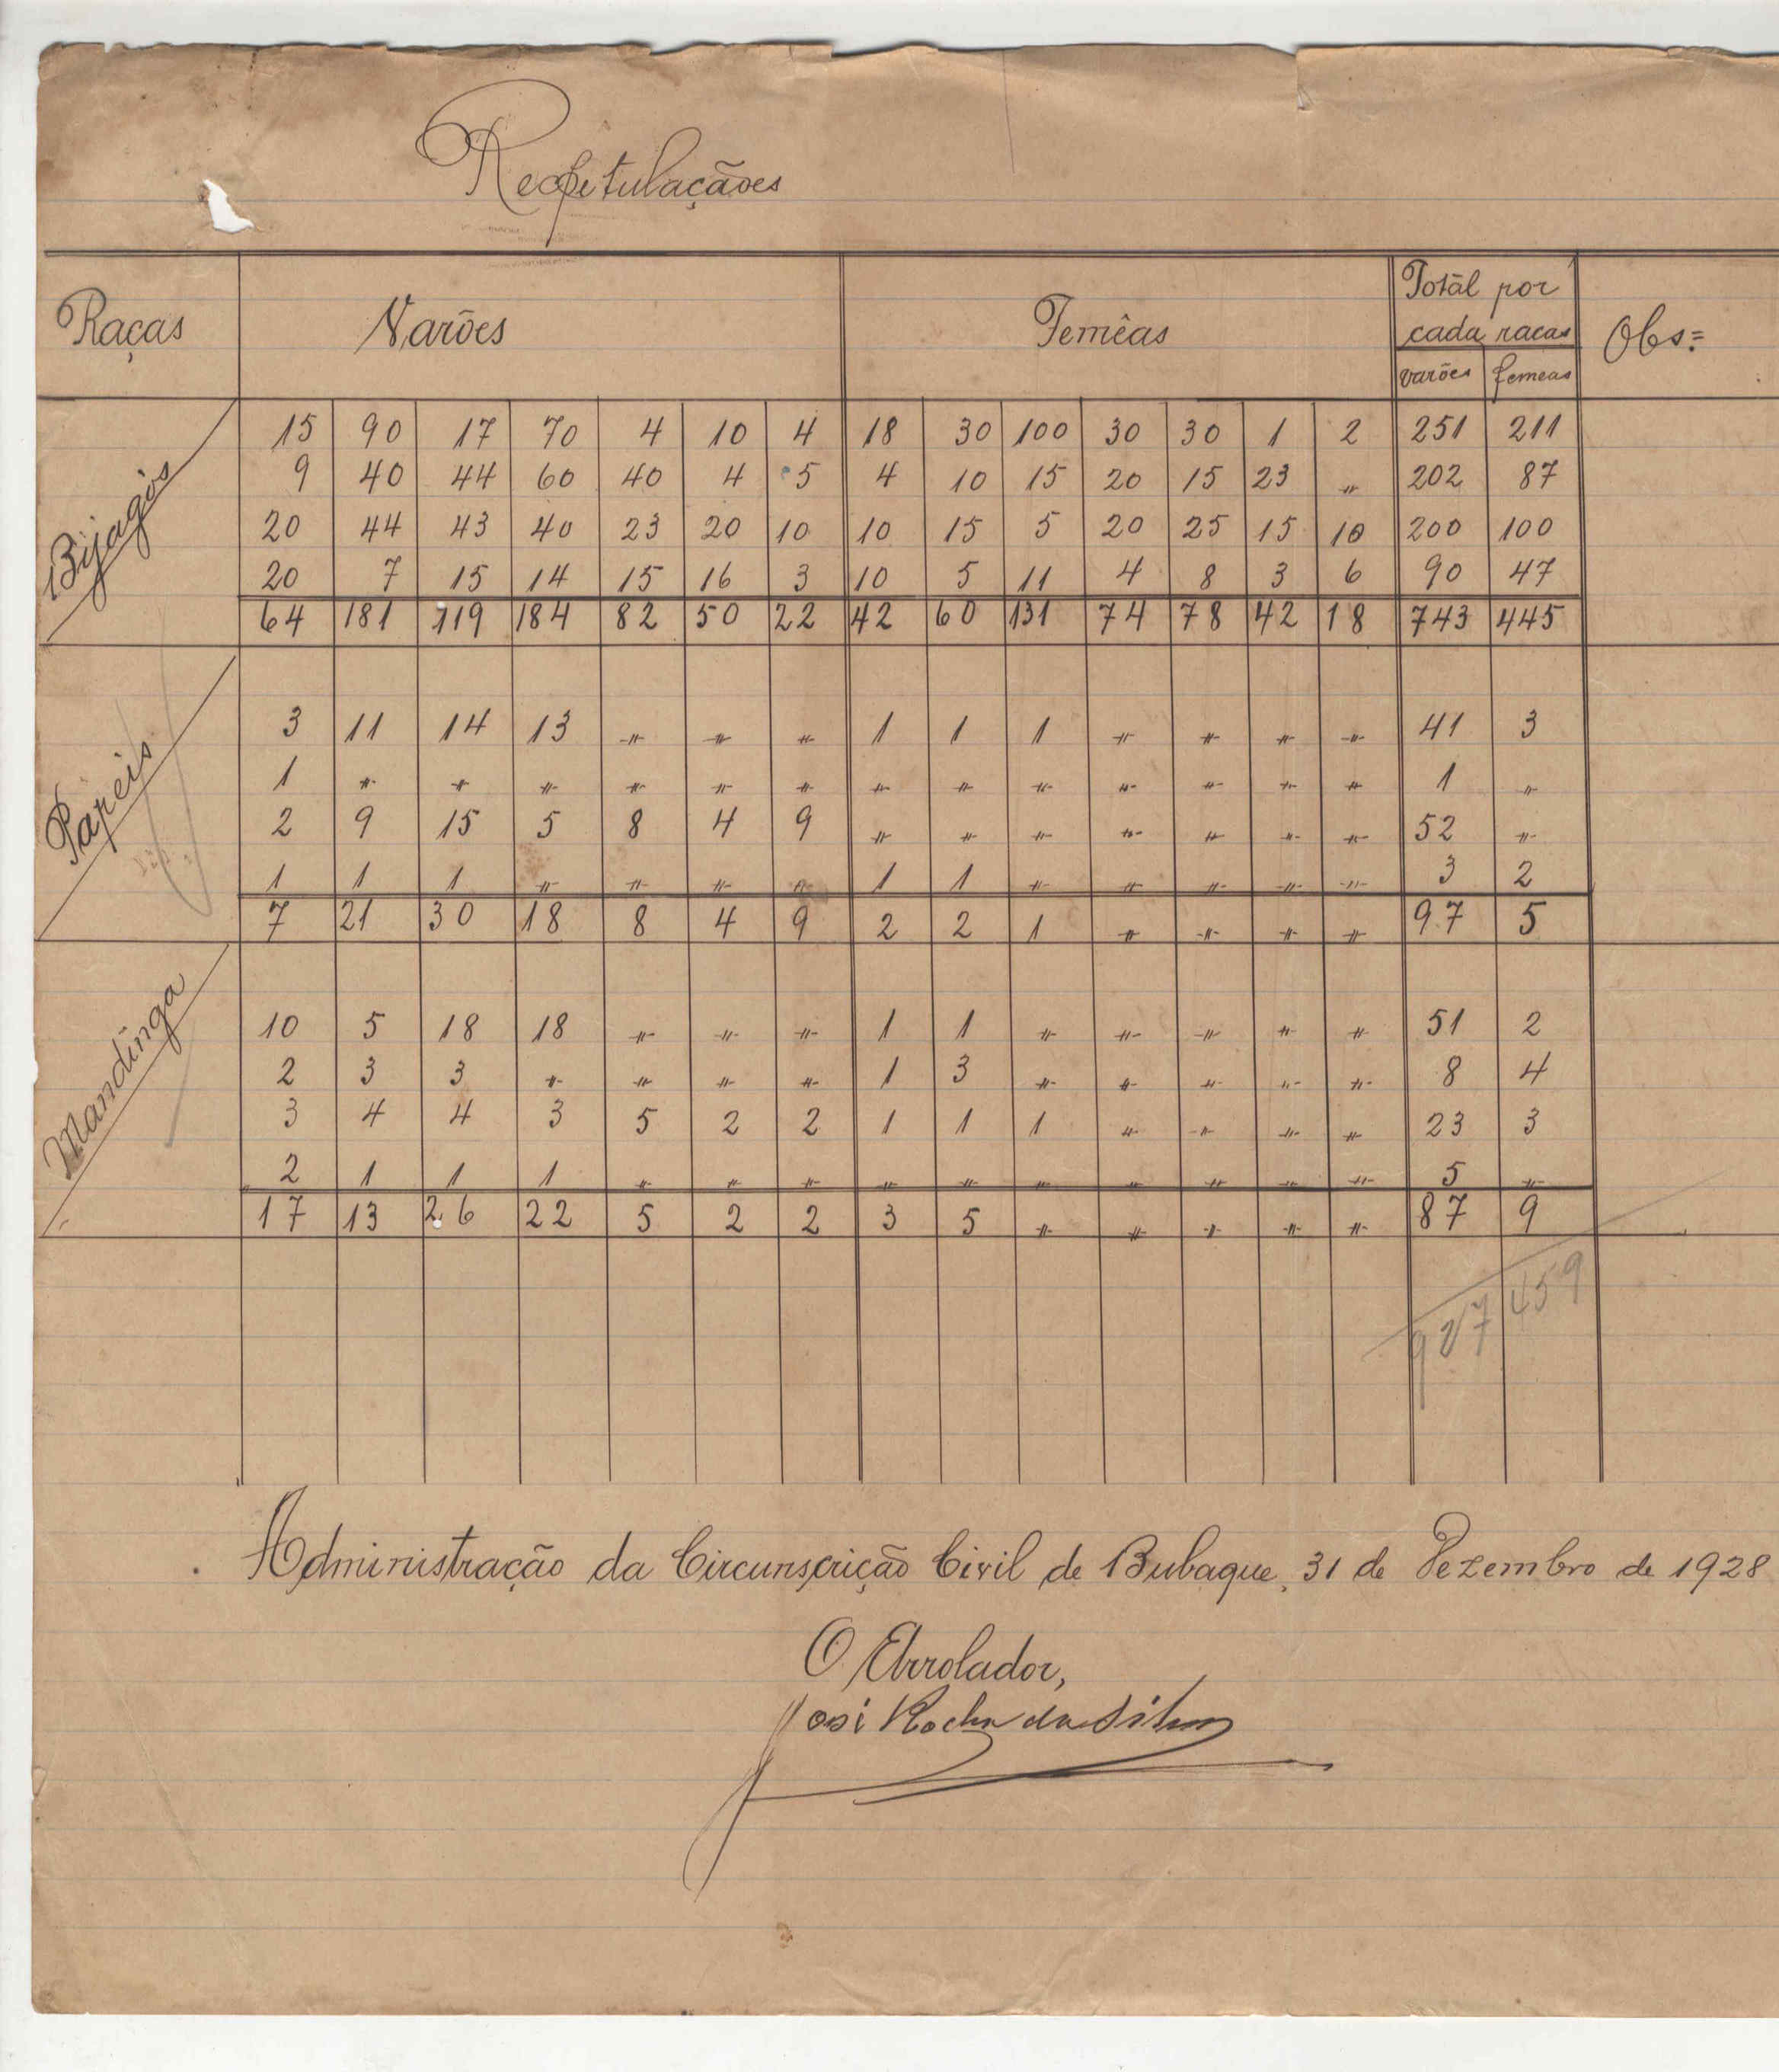 Recapitulaçãoes
Raças Varões Femêas Totál por cada racas Obs=
varões femeas
Bijagós
15 90 17 70 4 10 4 18 30 100 30 30 1 2 251 211
9 40 44 60 40 4 5 4 10 15 20 15 23 " 202 87
20 44 43 40 23 20 10 10 15 5 20 25 15 10 200 100
20 7 15 14 15 16 3 10 5 11 4 8 3 6 90 47
64 181 119 184 82 50 22 42 60 131 74 78 42 18 743 445
Papeis
3 11 14 13 " " " 1 1 1 " " " " 41 3
1 " " " " " " " " " " " " " 1 "
2 9 15 5 8 4 9 " " " " " " " 52 "
1 1 1 " " " " 1 1 " " " " " 3 2
7 21 30 18 8 4 9 2 2 1 " " " " 97 5
Mandinga
10 5 18 18 " " " 1 1 " " " " " 51 2
2 3 3 " " " " 1 3 " " " " " 8 4
3 4 4 3 5 2 2 1 1 1 " " " " 23 3
2 1 1 1 " " " " " " " " " " 5 "
17 13 26 22 5 2 2 3 5 " " " " " 87 9
927 459
Administração da Circunscrição Civil de Bubaque, 31 de Dezembro de 1928
O Arrolador,
José Rocha da Silva